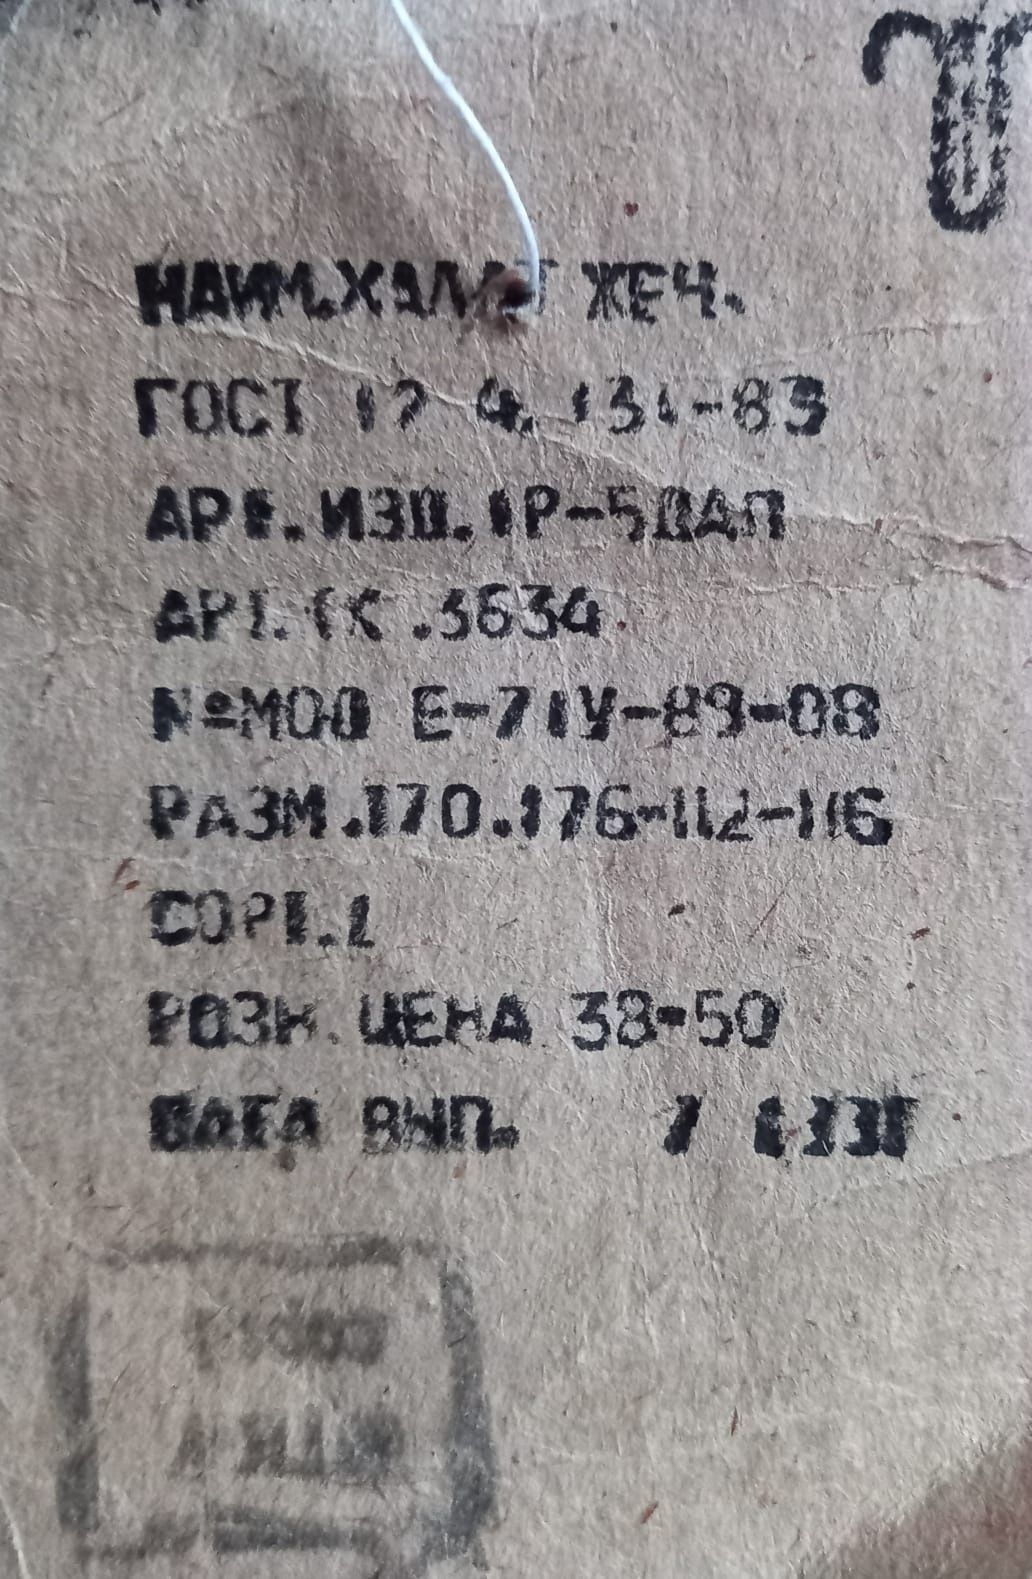 НАИМ.ХАЛАТ ЖЕЧ.
ГОСТ 12.4.131-83
АРТ.ИЗД.1Р-5ДАП
АРТ.ТК.3634
№МОД Е-71У-89-08
РАЗМ.170.176-112-116
СОРТ.1
РОЗН.ЦЕНА 38-50
ДАТА ВЫП.